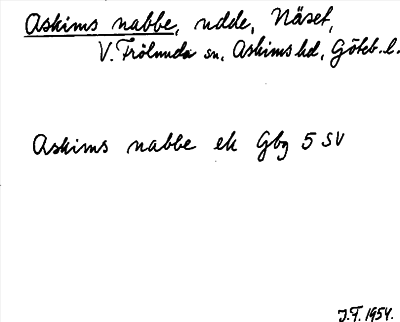 Askims nabbe, udde, Näset,
V. Frölunda sn, Askims hd, Göteb. l.
Askims nabbe ek Gbg 5 SV
J.F. 1954.